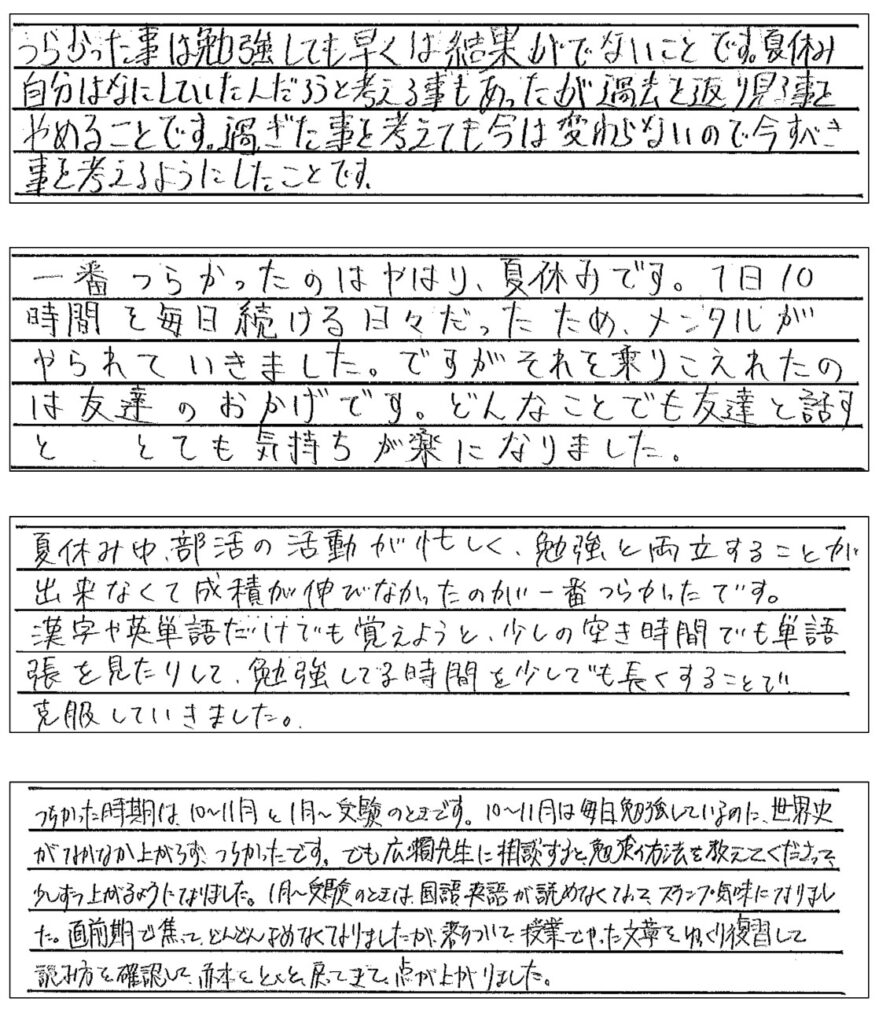 つらかった事は勉強しても早くは結果がでないことです。夏休み
自分はなにしていたんだろうと考える事もあったが過去を返り見る事を
やめることです。過ぎた事を考えても今は変わらないので今すべき
事を考えるようにしたことです。
一番つらかったのはやはり、夏休みです。1日10
時間を毎日続ける日々だったため、メンタルが
やられていきました。ですがそれを乗りこえれたの
は友達のおかげです。どんなことでも友達と話す
と とても気持ちが楽になりました。
夏休み中、部活の活動が忙しく、勉強と両立することが
出来なくて成積が伸びなかったのが一番つらかったです。
漢字や英単語だけでも覚えようと、少しの空き時間でも単語
張を見たりして、勉強してる時間を少しでも長くすることで
克服していきました。
つらかった時期は、10〜11月と1月〜受験のときです。10〜11月は毎日勉強しているのに、世界史
がなかなか上がらず、つらかったです。でも広瀬先生に相談すると、勉強方法を教えてくださって、
少しずつ上がるようになりました。1月〜受験のときは、国語英語が読めなくなって、スランプ気味になりまし
た。直前期で焦って、どんどんよめなくなりましたが、落ちついて、授業でやった文章をゆっくり復習して
読み方を確認して、赤本をとくと、戻ってきて、点が上がりました。